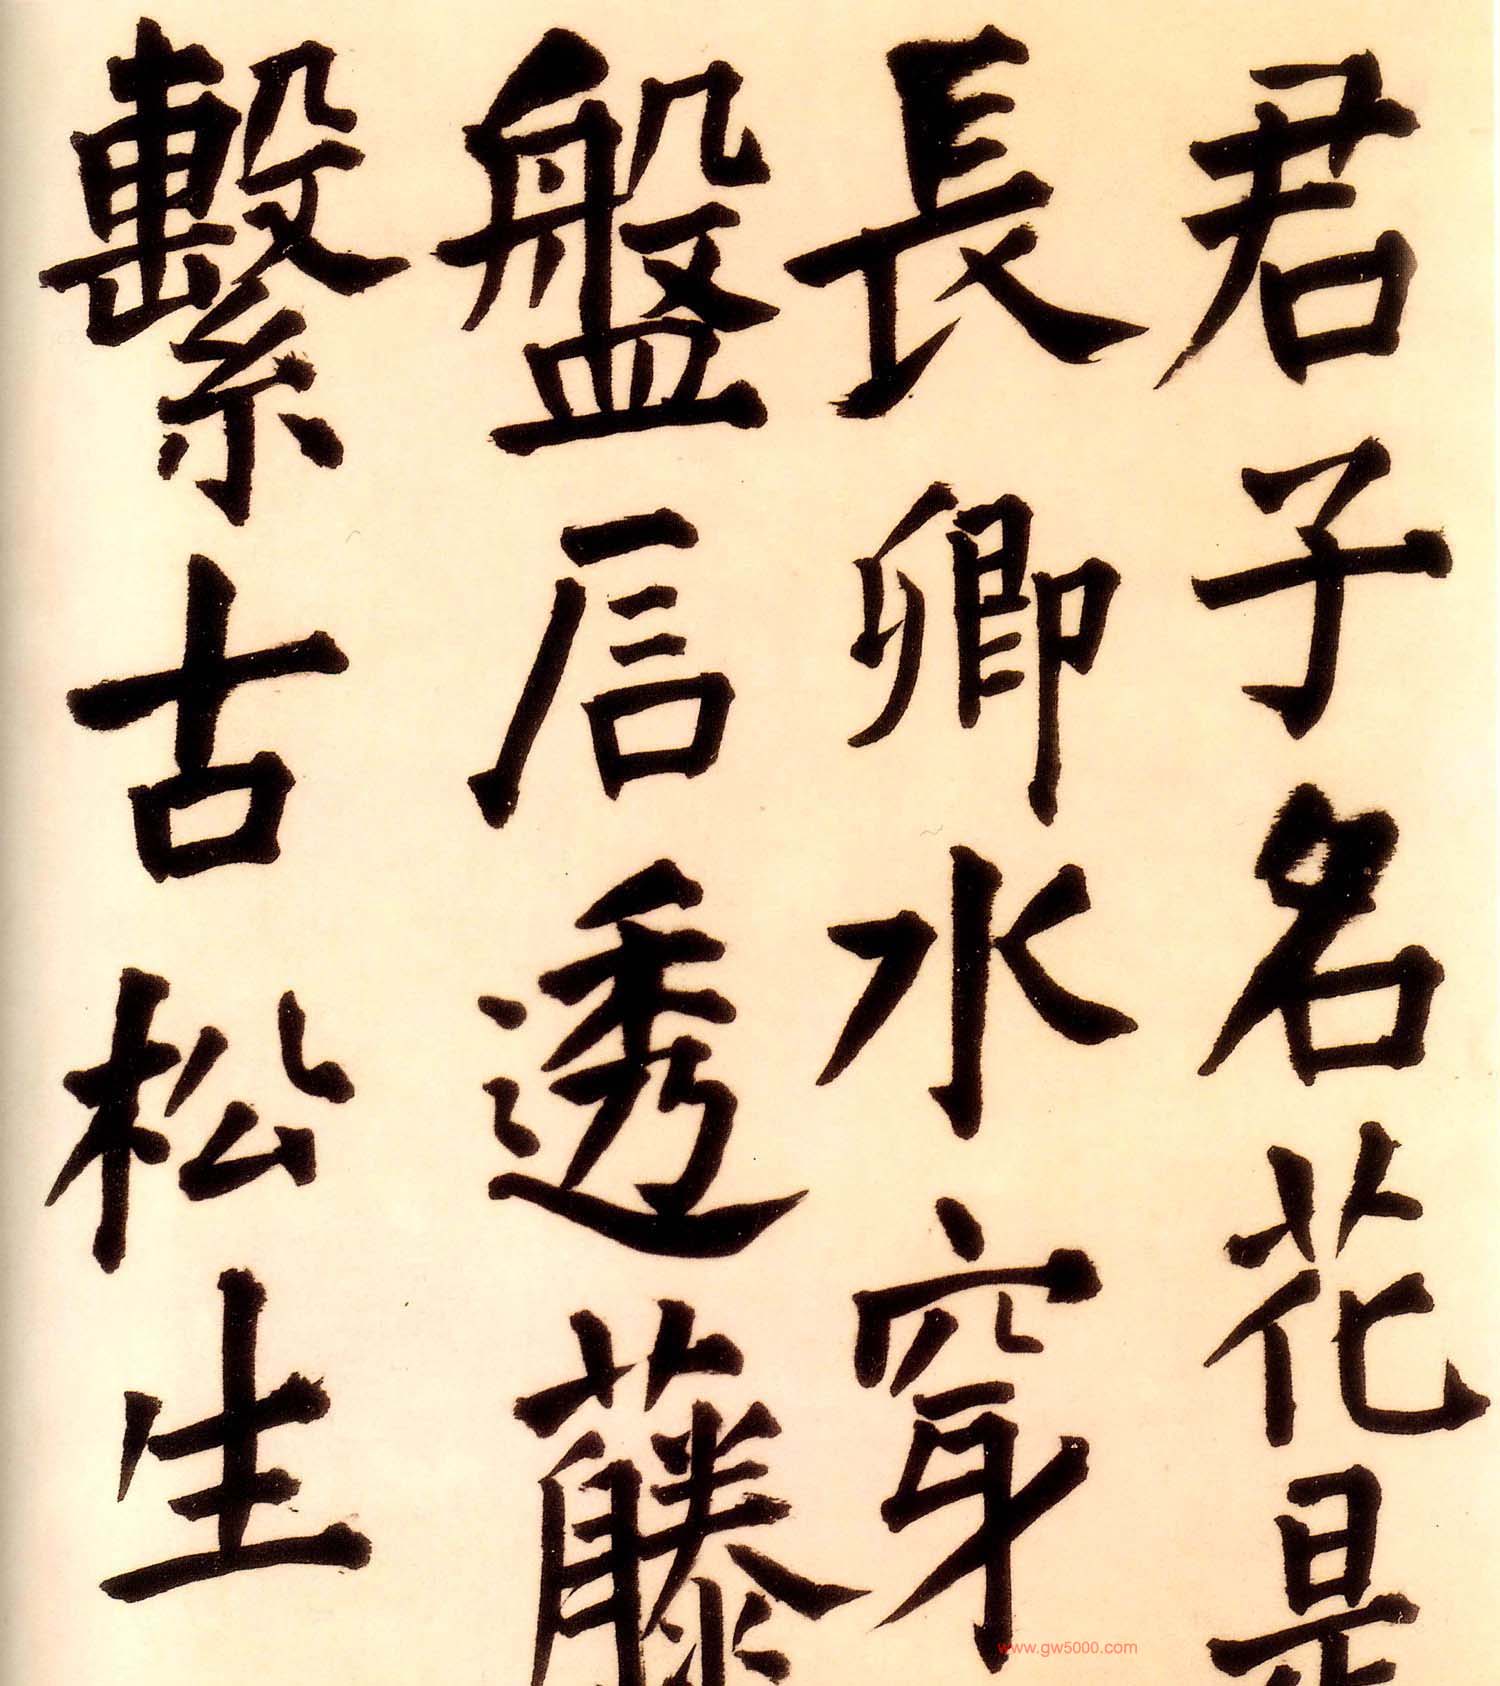 君子名花是
長卿水穿
盤透藤
繫古松生
www.gw5000.com